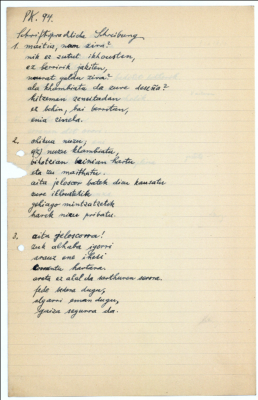 PK. 94.
Schriftsprachliche Schreibung
1. maitia, nun zira?
nik ez zutut ikhousten,
ez berririk jakiten,
nurat galdu zira?
ala khambiatu da zure
hitzeman zeneitadan
ez behin, bai berritan,
enia zirela.
2. ohikua nuzu,
enuzu khambiatu,
bihotzian beinian hartu
eta zu maithatu.
aita jeloscor batek dizu kausatu
zure ikhustetik
gehiago mintzatzetik
harek nizu pribatu.
3. aita jeloscorra!
zuk alhaba igorri
arauz ene ihesi
hartara.
ez alal da sarthuren serora
fede bedera dugu,
algarri eman dugu,
gauza segurra da.